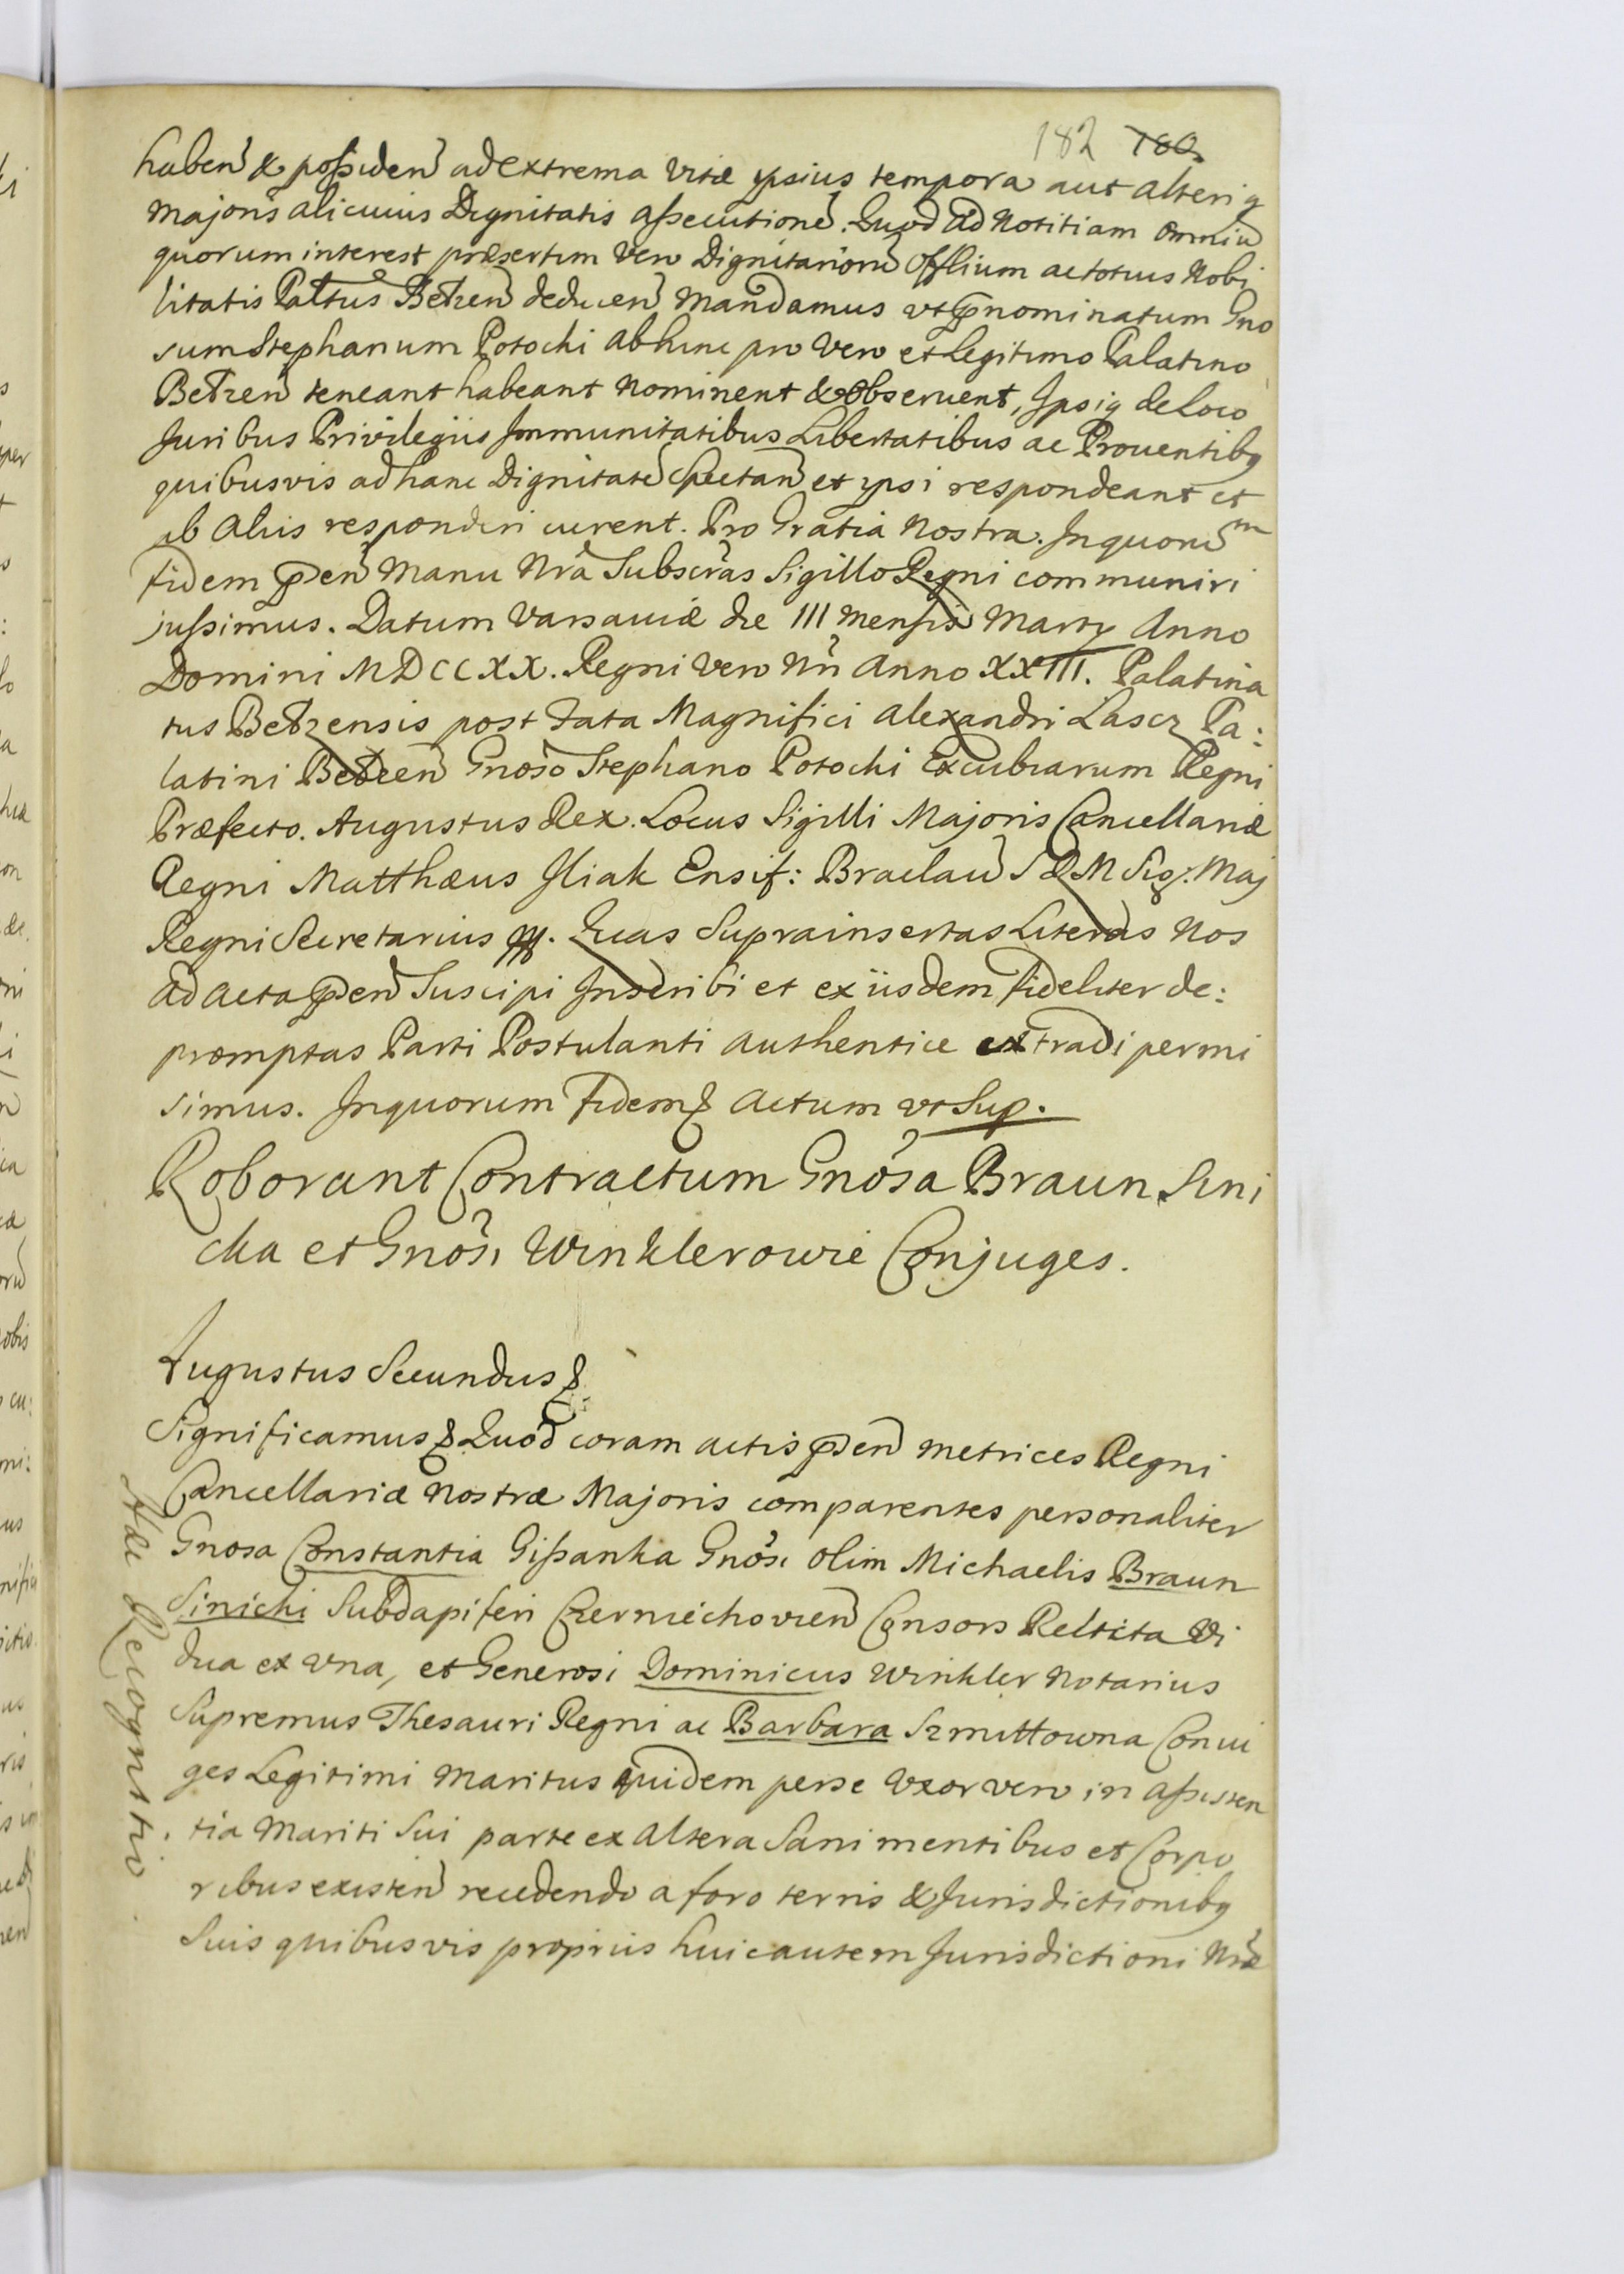 182 180
haben & possiden ad extrema vitæ ipsius tempora aut alteriq
majoris alicuius Dignitatis assecutione. Quod ad Notitiam omniu
quorum interest præsertim vero Dignitarioru Offlium ac totius Nobi
litatis Paltus Betzen deducen Mandamus vt pnominatum Gno
sum Stephanum Potocki ab hinc pro vero et Legitimo Palatino
Betzen teneant habeant Nominent & observent, Ipsiq de loco
Juribus Privilegiis Immunitatibus Libertatibus ac Prouentibq
quibusvis ad hanc Dignitate spectan et ipsi respondeant et
ab aliis responderi curent. Pro Gratia Nostra. In quoru m
fidem psen Manu Nra Subscras Sigillo Regni communiri
jussimus. Datum Varsauiæ die III Mensis Marty Anno
Domini MDCCXX. Regni vero Nri Anno XXIII. Palatina
tus Betzensis post Fata Magnifici Alexandri Lascz Pa:
latini Betzen Gnoso Stephano Potocki Excubiarum Regni
Præfecto. Augustus Rex. Locus Sigilli Majoris Cancellariæ
Regni Matthæus Iliak Ensif: Braclau S R M Sig. Maj
Regni Secretarius mp. Quas Suprainsertas Literas Nos
ad acta psen Suscipi Inscribi et ex iisdem fideliter de:
promptas Parti Postulanti authentice extradi permi
simus. In quorum fidem & Actum vt Sup.
Roborant Contractum Gnosa Braun Sini
cka et Gnosi Winklerowie Conjuges.
Augustus Secundus &.
Significamus & Quod coram actis psen Metrices Regni
Cancellariæ Nostræ Majoris comparentes personaliter
Gnosa Constantia Gissanka Gnosi olim Michaelis Braun
Sinicki Subdapiferi Czerniechovien Consors Relicta Vi
dua ex vna, et Generosi Dominicus Winkler Notarius
Supremus Thesauri Regni ac Barbara Szmittowna Coniu
ges Legitimi Maritus quidem per se Vxor vero in assisten
tia Mariti Sui parte ex altera Sani mentibus et Corpo
ribus existen recedendo a foro terris & Jurisdictionibq
Suis quibusvis propriis huic autem Jurisdictioni Nræ
Recognitio